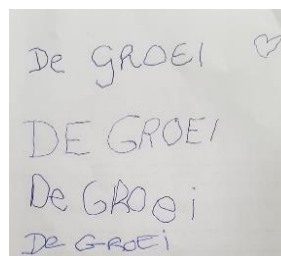 De GROEI
DE GROEI
De GROei
De GROEi